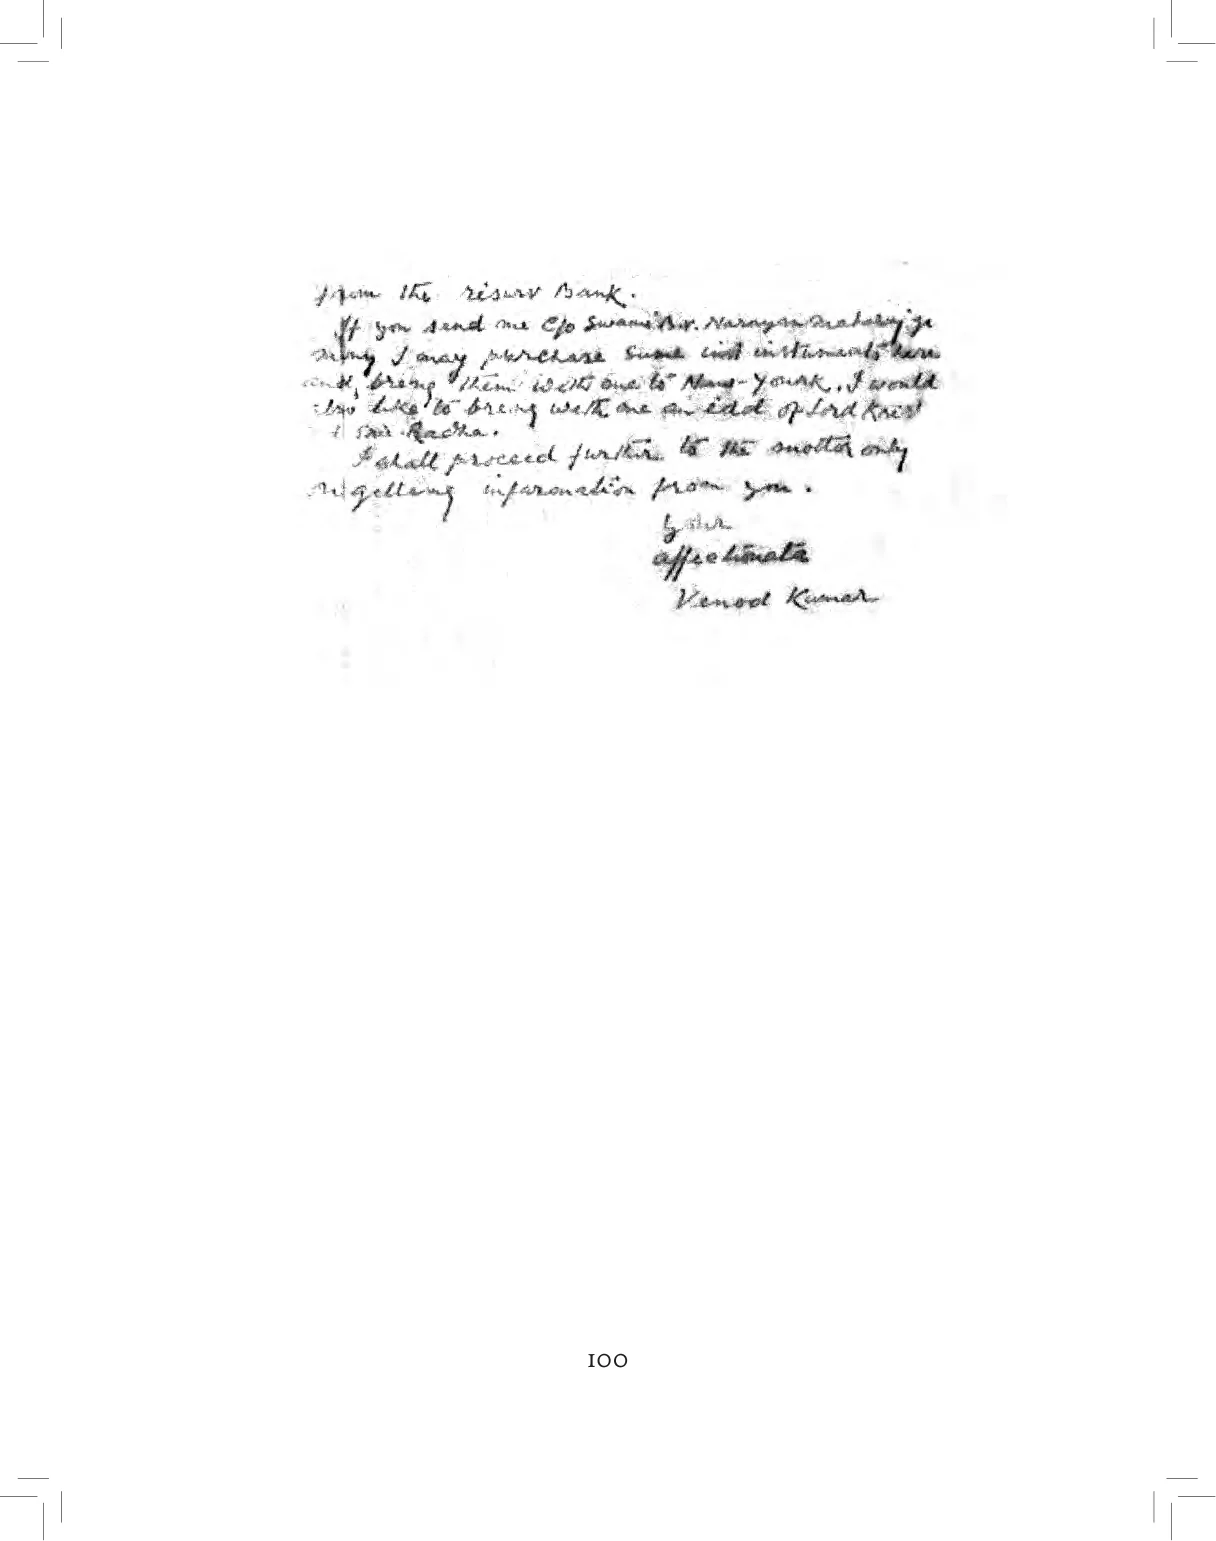 from the reserv Bank.
If you send me C/o Swami B.V. Narayan maharaj ji
I may purchase some instuments here
and, breng them with me to New-Yourk. I would
also like to breng with me an idol of Lord Kris
Radha.
I shall proceed further to the matter only
getteng information from you.
Your
affectionate
Venod Kumar
100